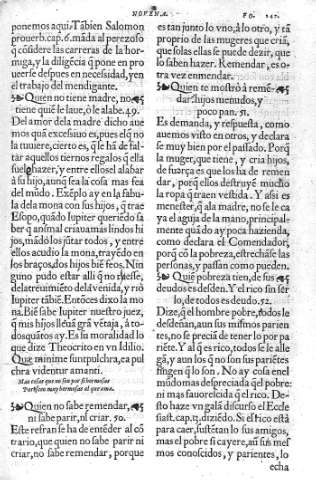 NOVENA. FO. 227.
ponemos aqui. Tābien Salomon
prouerb. cap. 6. māda al perezoso
q̄ cōsidere las carreras de la hor-
miga, y la diligēcia q̄ pone en pro
ueerse despues en necessidad, y en
el trabajo del mendigante.
Quien no tiene madre, no
tiene quiē le laue, o le alabe. 49.
Del amor dela madre dicho aue
mos quā excessiuo es, pues el q̄ no
la tuuiere, cierto es, q̄ le hā de fal-
tar aquellos tiernos regalos q̄ ella
suele hazer, y entre ellos el alabar
a su hijo, aunq̄ sea la cosa mas fea
del mūdo. Exēplo ay en la fabu-
la dela mona con sus hijos, q̄ trae
Esopo, quādo Iupiter queriēdo sa
ber q̄ animal criaua mas lindos hi
jos, mādo los jūtar todos, y entre
ellos acudio la mona, trayēdo en
los braços, dos hijos biē feos. Nin
guno pudo estar alli q̄ no riesse,
del atreuimiēto de la venida, y rio
Iupiter tābiē. Entōces dixo la mo
na. Biē sabe Iupiter nuestro juez,
q̄ mis hijos lleuā grā vētaja, a to-
dos quātos ay. Es su moralidad lo
que dize Theocrito en vn Idilio.
Quæ minime sunt pulchra, ea pul
chra videntur amanti.
Mas cosas que no son por si hermosas
Parescen muy hermosas al que ama.
Quien no sabe remendar,
ni sabe parir, ni criar. 50.
Este refran se ha de entēder al cō
trario, que quien no sabe parir ni
criar, no sabe remendar, porque
es tan junto lo vno, a lo otro, y tā
proprio de las mugeres que criā,
que solas ellas se puede dezir, que
lo saben hazer. Remendar, es o-
tra vez enmendar.
Quien te mostro a reme-
dar: hijos menudos, y
poco pan. 51.
Es demanda, y respuesta, como
auemos visto en otros, y declara
se muy bien por el passado. Porq̄
la muger, que tiene, y cria hijos,
de fuerça es que los ha de remen
dar, porq̄ ellos destruyē mucho
la ropa q̄ traen vestida. Y assi es
menester, q̄ ala madre, no se le ca
ya el aguja de la mano, principal-
mente quādo ay poca hazienda,
como declara el Comendador,
porq̄ cō la pobreza, estrechāse las
personas, y passan como pueden.
Quiē pobreza tien, de sus
deudos es desden. Y el rico sin ser
lo, de todos es deudo. 52.
Dize, q̄ el hombre pobre, todos le
desdeñan, aun sus mismos parien
tes, no se precia de tener lo por pa
riēte. Y al q̄ es rico, todos se le alle
gā, y aun los q̄ no son sus pariētes
fingen q̄ lo son. No ay cosa enel
mūdo mas despreciada q̄ el pobre:
ni mas fauorescida q̄ el rico. De-
sto haze vn galā discurso el Eccle
siast. cap. 13. diziēdo. Si el rico està
para caer, sustētan lo sus amigos,
mas el pobre si cayere, aū sus mes
mos conoscidos, y parientes, lo
echa